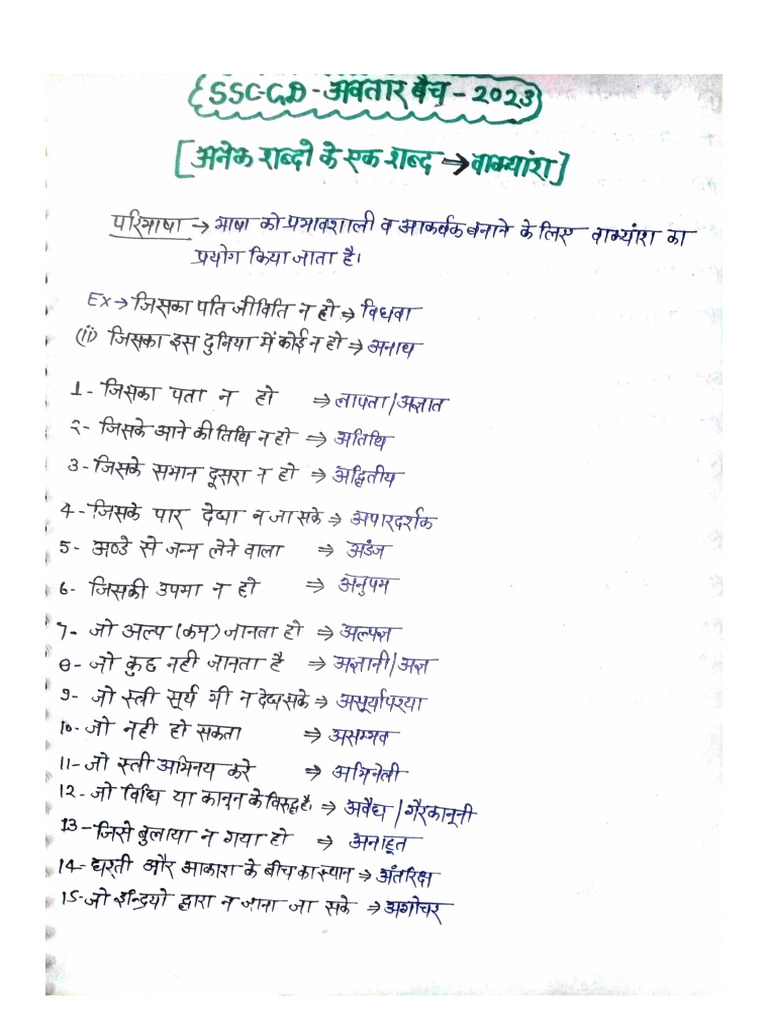 SSC-GD-अवतार बैच-2023
[अनेक शब्दो के एक शब्द → वाक्यांश]
परिभाषा → भाषा को प्रभावशाली व आकर्षक बनाने के लिए वाक्यांश का
प्रयोग किया जाता है।
Ex → जिसका पति जीविति न हो ⇒ विधवा
(ii) जिसका इस दुनिया में कोई न हो ⇒ अनाथ
1- जिसका पता न हो ⇒ लापता/अज्ञात
2- जिसके आने की तिथि न हो ⇒ अतिथि
3- जिसके समान दूसरा न हो ⇒ अद्वितीय
4- जिसके पार देखा न जा सके ⇒ अपारदर्शक
5- अण्डे से जन्म लेने वाला ⇒ अंडज
6- जिसकी उपमा न हो ⇒ अनुपम
7- जो अल्प (कम) जानता हो ⇒ अल्पज्ञ
8- जो कुछ नही जानता है ⇒ अज्ञानी/अज्ञ
9- जो स्त्री सूर्य भी न देख सके ⇒ असूर्यापश्या
10- जो नही हो सकता ⇒ असम्भव
11- जो स्त्री अभिनय करे ⇒ अभिनेत्री
12- जो विधि या कानून के विरुद्ध है। ⇒ अवैध/गैरकानूनी
13- जिसे बुलाया न गया हो ⇒ अनाहूत
14- धरती और आकाश के बीच का स्थान ⇒ अंतरिक्ष
15- जो इन्द्रियो द्वारा न जाना जा सके ⇒ अगोचर